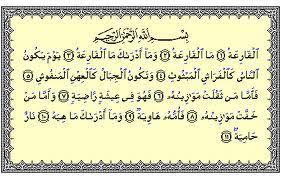 بِسْمِ ٱللَّهِ ٱلرَّحْمَٰنِ ٱلرَّحِيمِ
ٱلْقَارِعَةُ ۝١ مَا ٱلْقَارِعَةُ ۝٢ وَمَآ أَدْرَىٰكَ مَا ٱلْقَارِعَةُ ۝٣ يَوْمَ يَكُونُ
ٱلنَّاسُ كَٱلْفَرَاشِ ٱلْمَبْثُوثِ ۝٤ وَتَكُونُ ٱلْجِبَالُ كَٱلْعِهْنِ ٱلْمَنفُوشِ ۝٥
فَأَمَّا مَن ثَقُلَتْ مَوَٰزِينُهُۥ ۝٦ فَهُوَ فِى عِيشَةٍ رَّاضِيَةٍ ۝٧ وَأَمَّا مَنْ
خَفَّتْ مَوَٰزِينُهُۥ ۝٨ فَأُمُّهُۥ هَاوِيَةٌ ۝٩ وَمَآ أَدْرَىٰكَ مَا هِيَهْ ۝١٠ نَارٌ
حَامِيَةٌۢ ۝١١